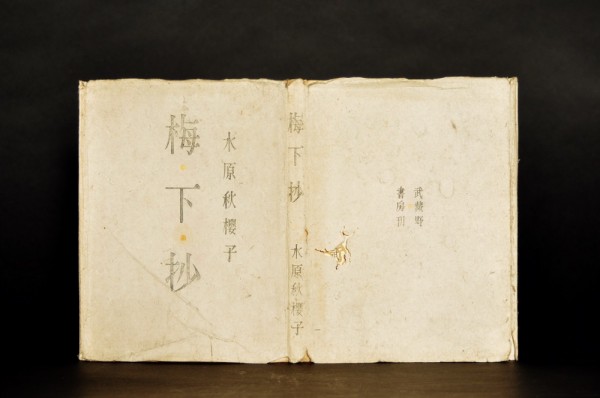 梅・下・抄
水原秋櫻子
梅下抄
水原秋櫻子
武蔵野
書房刊